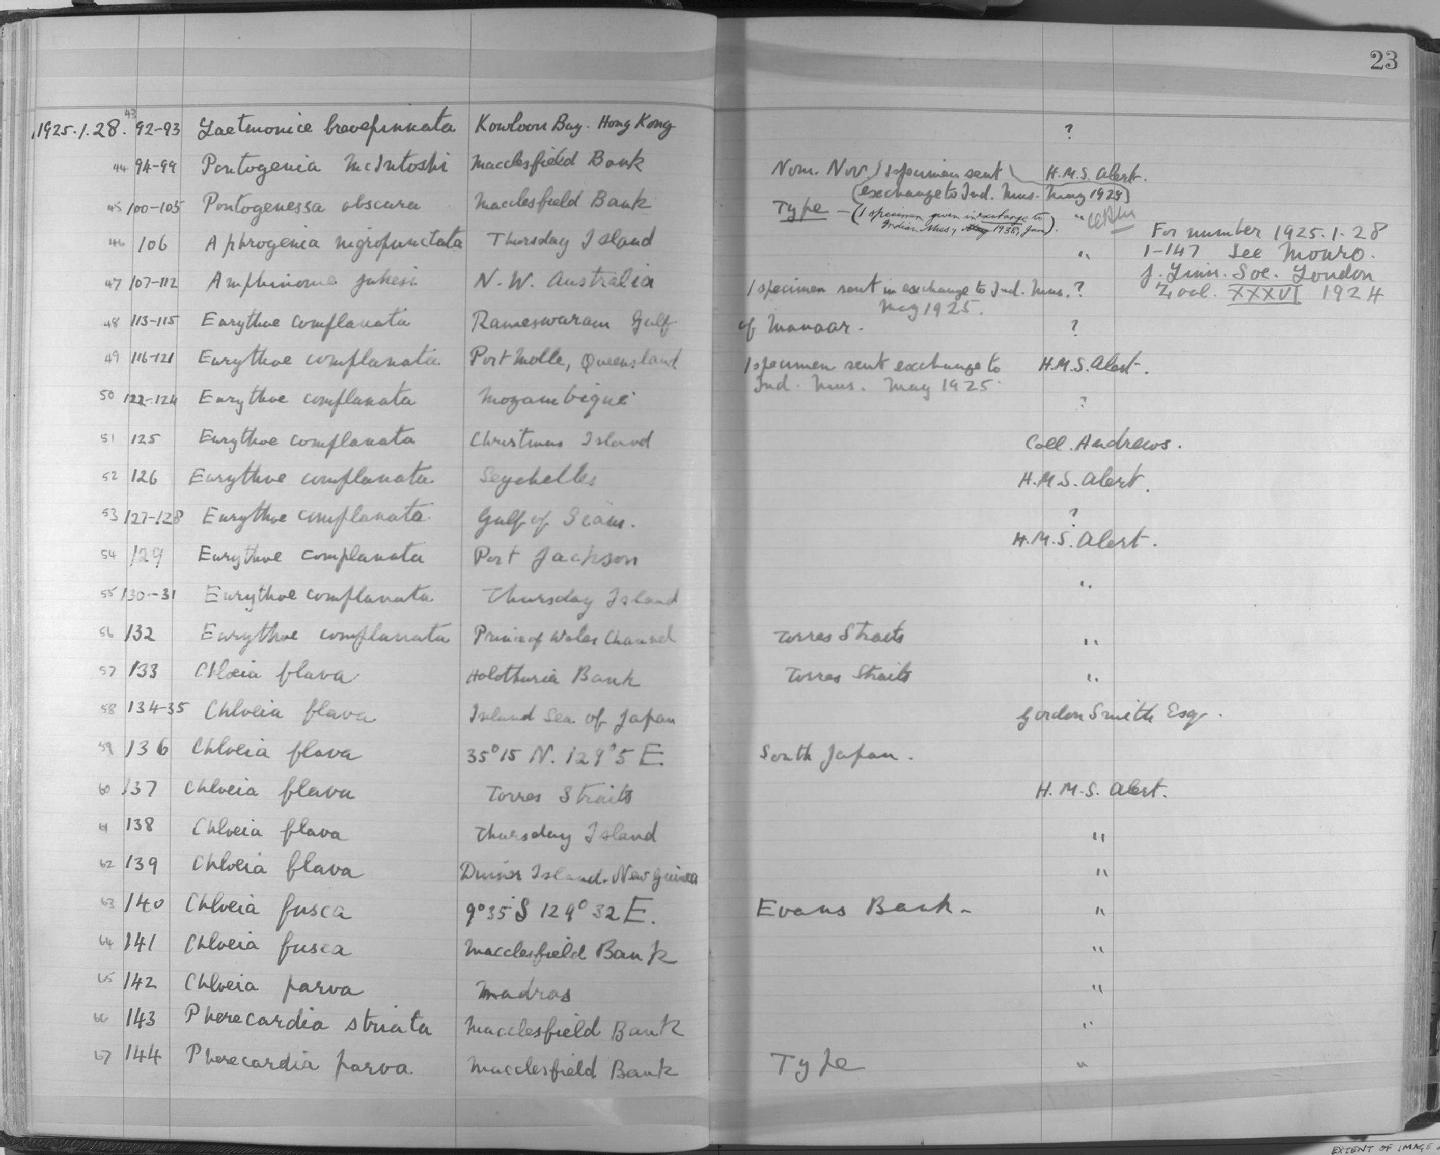 23
1925.1.28. 43 92-93 Laetmonice brevepinnata Kowloon Bay. Hong Kong ?
44 94-99 Pontogenia McIntoshi Macclesfield Bank Nom. Nov. / 1 specimen sent H.M.S. Alert.
(exchange to Ind. Mus. May 1925)
45 100-105 Pontogenessa obscura Macclesfield Bank Type - (1 specimen given in exchange to "
Indian Mus, 1938, Jan).
46 106 Aphrogenia nigropunctata Thursday Island "
For number 1925.1.28
1-147 See Monro.
J. Linn. Soc. London
Zool. XXXVI 1924
47 107-112 Amphinome jukesi N.W. Australia 1 specimen sent in exchange to Ind. Mus. ?
May 1925.
48 113-115 Eurythoe complanata Rameswaram Gulf of Manaar. ?
49 116-121 Eurythoe complanata Port Molle, Queensland 1 specimen sent exchange to H.M.S. Alert.
Ind. Mus. May 1925.
50 122-124 Eurythoe complanata Mozambique ?
51 125 Eurythoe complanata Christmas Island Coll. Andrews.
52 126 Eurythoe complanata Seychelles H.M.S. Alert.
53 127-128 Eurythoe complanata Gulf of Siam. ?
54 129 Eurythoe complanata Port Jackson H.M.S. Alert.
55 130-31 Eurythoe complanata Thursday Island "
56 132 Eurythoe complanata Prince of Wales Channel Torres Straits "
57 133 Chloeia flava Holothuria Bank Torres Straits "
58 134-35 Chloeia flava Inland Sea of Japan Gordon Smith Esq.
59 136 Chloeia flava 35°15 N. 129°5 E. South Japan.
60 137 Chloeia flava Torres Straits H.M.S. Alert.
61 138 Chloeia flava Thursday Island "
62 139 Chloeia flava Island. New Guinea "
63 140 Chloeia fusca 9°35 S 129°32 E. Evans Bank- "
64 141 Chloeia fusca Macclesfield Bank "
65 142 Chloeia parva Madras "
66 143 Pherecardia striata Macclesfield Bank "
67 144 Pherecardia parva Macclesfield Bank Type "
EXTENT OF IMAGE